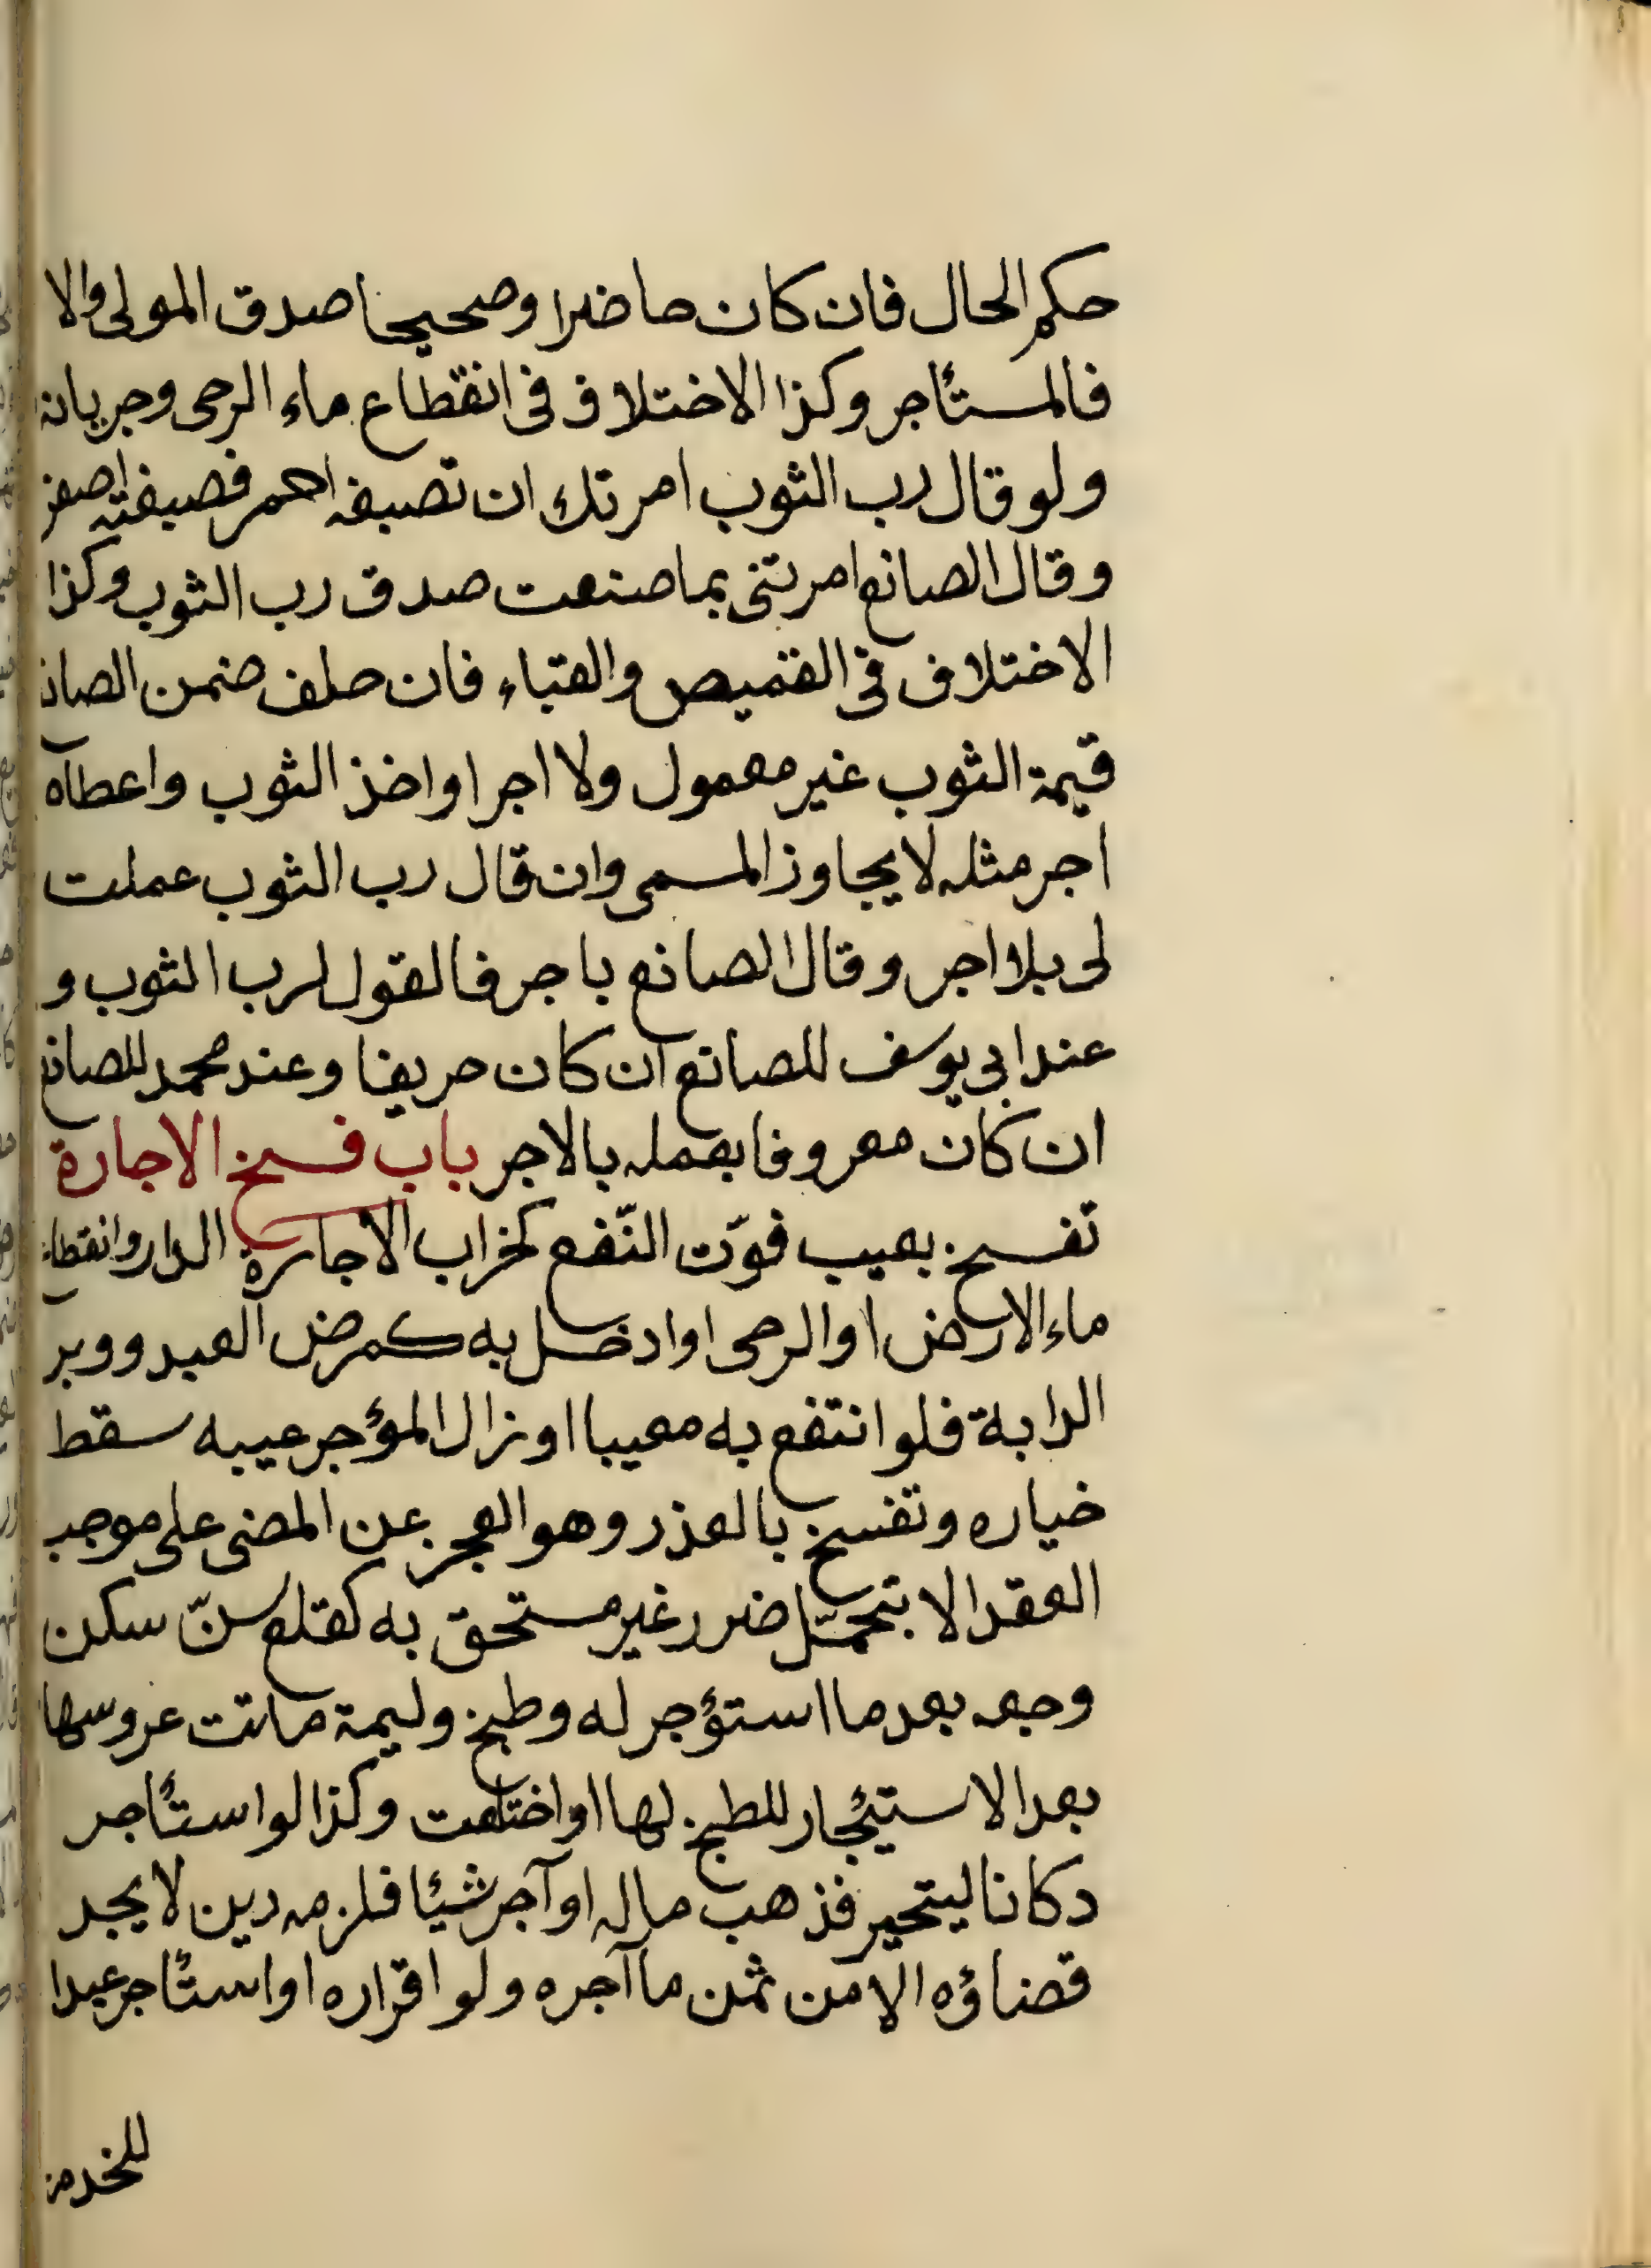 حكم الحال فان كان حاضرا وصحيحا صدق المولى والا
فالمستأجر وكذا الاختلاف فى انقطاع ماء الرحى وجريانه
ولو قال رب الثوب امرتك ان تصبغه احمر فصبغته اصفر
وقال الصانع امرتنى بما صنعت صدق رب الثوب وكذا
الاختلاف فى القميص والقباء فان حلف ضمن الصانع
قيمة الثوب غير معمول ولا اجر او اخذ الثوب واعطاه
اجر مثله لا يجاوز المسمى وان قال رب الثوب عملت
لى بلا اجر وقال الصانع باجر فالقول لرب الثوب و
عند ابى يوسف للصانع ان كان حريفا وعند محمد للصانع
ان كان معروفا بعمله بالاجر باب فسخ الاجارة
تفسخ بعيب فوّت النّفع كخراب الاجارة الدار وانقطاع
ماء الارض او الرحى او ادخل به كمرض العبد ووبر
الدابة فلو انتفع به معيبا او زال المؤجر عيبه سقط
خياره وتفسخ بالعذر وهو العجز عن المضى على موجب
العقد الا بتحمّل ضرر غير مستحق به كقلع سنّ سكن
وجعه بعد ما استؤجر له وطبخ وليمة ماتت عروسها
بعد الاستيئجار للطبخ لها او اختلعت وكذا لو استأجر
دكانا ليتجر فذهب ماله او آجر شيئا فلزمه دين لا يجد
قضاؤه الا من ثمن ما آجره ولو اقراره او استأجر عبدا
للخدمة